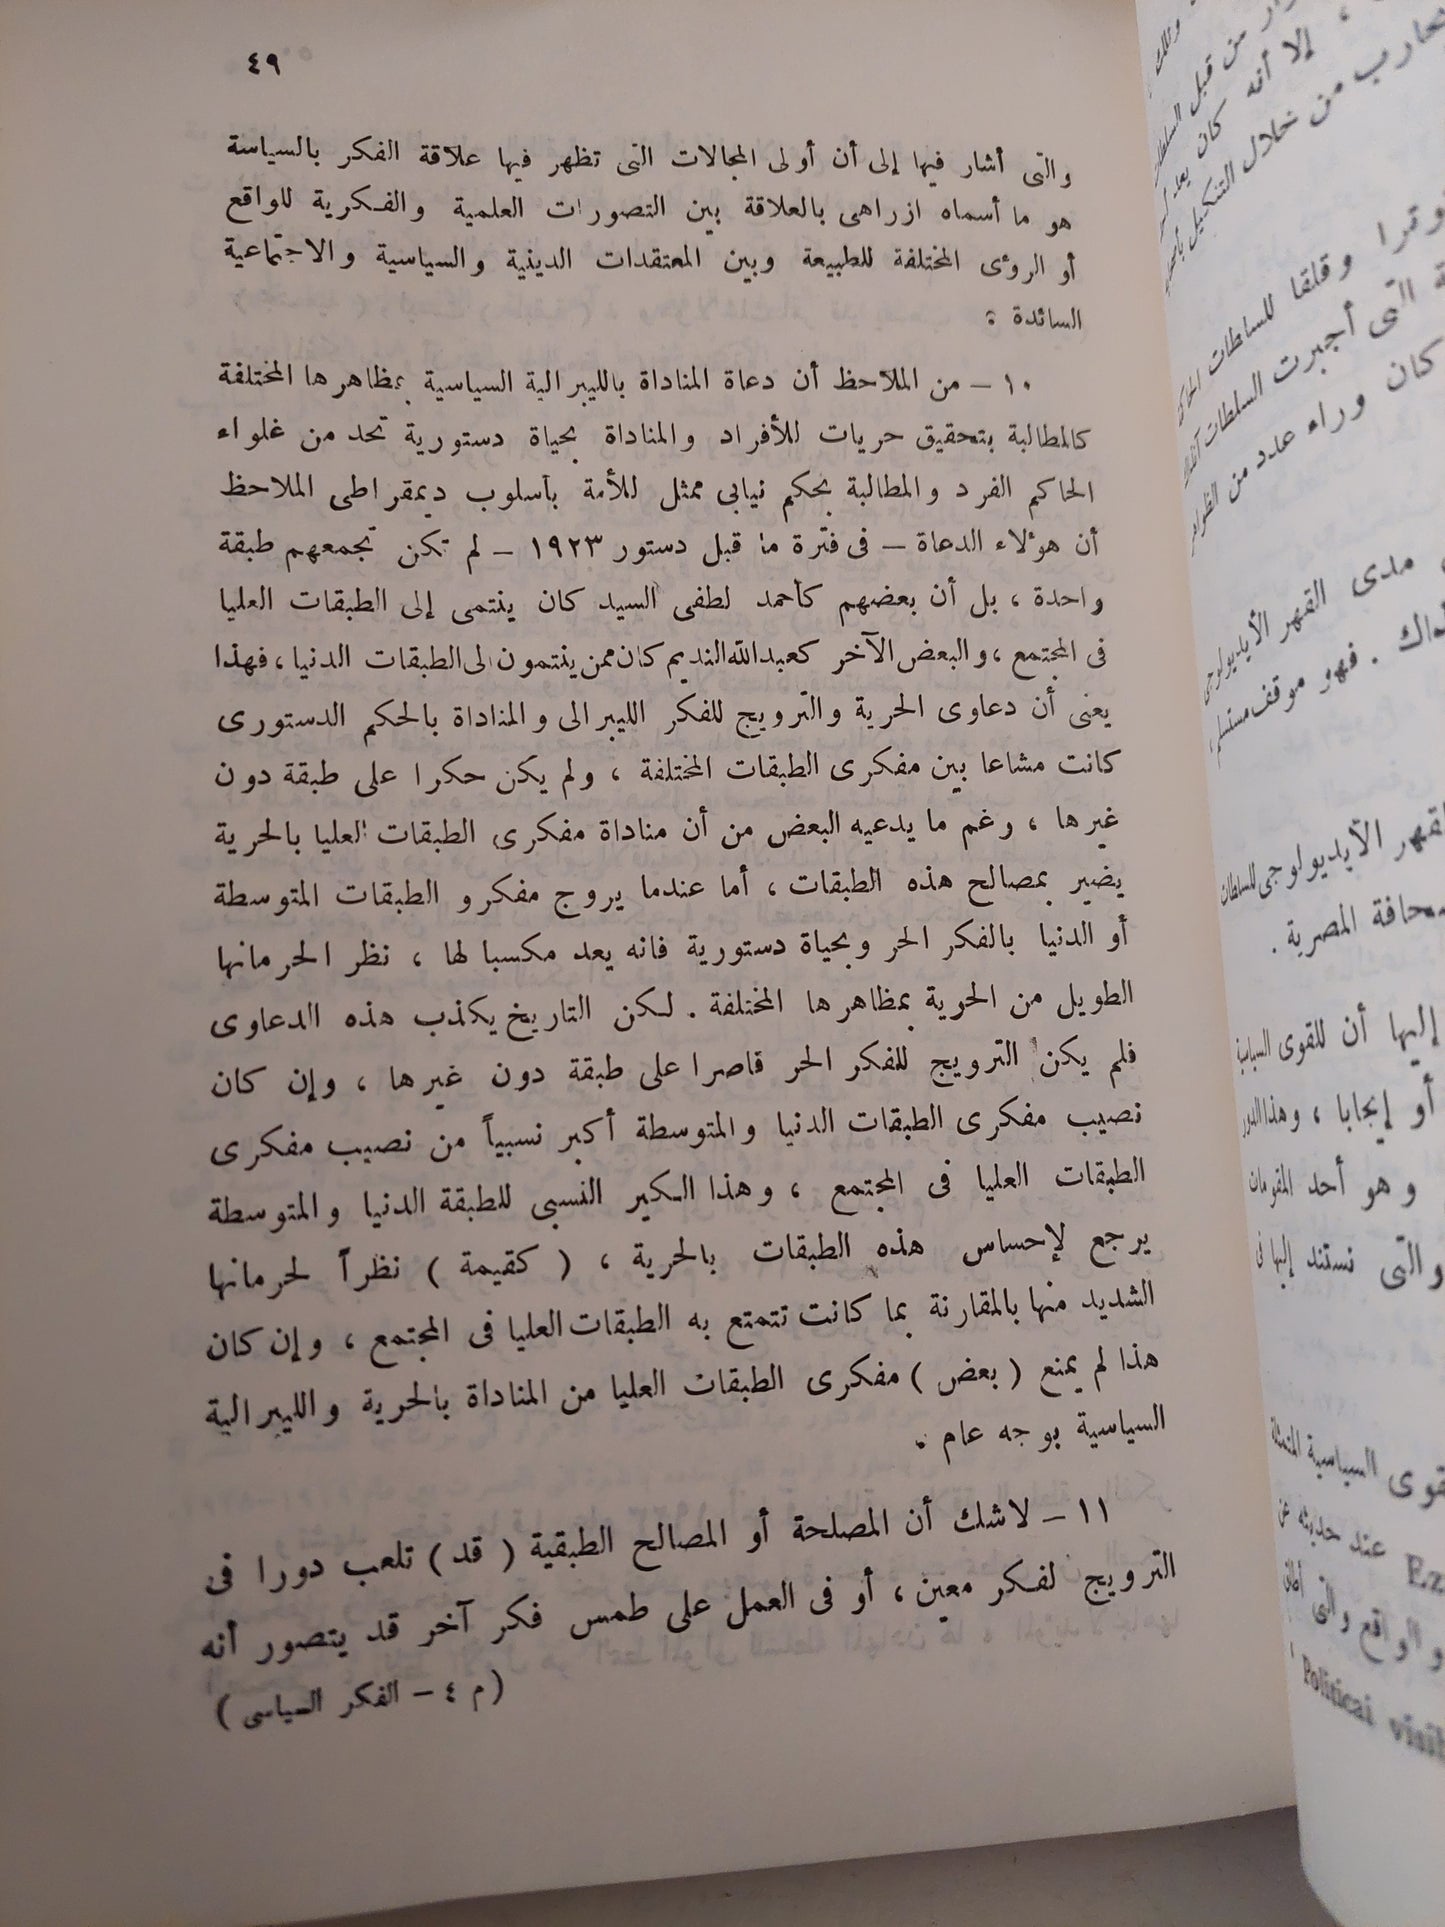 ٤٩
والتى أشار فيها إلى أن أولى المجالات التى تظهر فيها علاقة الفكر بالسياسة
هو ما أسماه ازراهى بالعلاقة بين التصورات العلمية والفكرية للواقع
أو الرؤى المختلفة للطبيعة وبين المعتقدات الدينية والسياسية والاجتماعية
السائدة :
١٠ – من الملاحظ أن دعاة المناداة بالليبرالية السياسية بمظاهرها المختلفة
كالمطالبة بتحقيق حريات للأفراد والمناداة بحياة دستورية تحد من غلواء
الحاكم الفرد والمطالبة بحكم نيابى ممثل للأمة بأسلوب ديمقراطى الملاحظ
أن هؤلاء الدعاة – فى فترة ما قبل دستور ١٩٢٣ – لم تكن تجمعهم طبقة
واحدة ، بل أن بعضهم كأحمد لطفى السيد كان ينتمى إلى الطبقات العليا
فى المجتمع ، والبعض الآخر كعبدالله النديم كان ممن ينتمون الى الطبقات الدنيا ، فهذا
يعنى أن دعاوى الحرية والترويج للفكر الليبرالى والمناداة بالحكم الدستورى
كانت مشاعا بين مفكرى الطبقات المختلفة ، ولم يكن حكرا على طبقة دون
غيرها ، ورغم ما يدعيه البعض من أن مناداة مفكرى الطبقات العليا بالحرية
يضير بمصالح هذه الطبقات ، أما عندما يروج مفكرو الطبقات المتوسطة
أو الدنيا بالفكر الحر وبحياة دستورية فانه يعد مكسبا لها ، نظر الحرمانها
الطويل من الحوية بمظاهرها المختلفة . لكن التاريخ يكذب هذه الدعاوى
فلم يكن الترويج للفكر الحر قاصرا على طبقة دون غيرها ، وإن كان
نصيب مفكرى الطبقات الدنيا والمتوسطة أكبر نسبياً من نصيب مفكرى
الطبقات العليا فى المجتمع ، وهذا الكير النسبى للطبقة الدنيا والمتوسطة
يرجع لإحساس هذه الطبقات بالحرية ، ( كقيمة ) نظراً لحرمانها
الشديد منها بالمقارنة بما كانت تتمتع به الطبقات العليا فى المجتمع ، وإن كان
هذا لم يمنع ( بعض ) مفكرى الطبقات العليا من المناداة بالحرية والليبرالية
السياسية بوجه عام .
١١ – لاشك أن المصلحة أو المصالح الطبقية ( قد ) تلعب دورا فى
الترويج لفكر معين ، أو فى العمل على طمس فكر آخر قد يتصور أنه
(م ٤ – الفكر السياسى )
وتلك
من قبل السلطات
، إلا أنه كان يعد
تحارب من خلال التنكيل
وتمرا وقلقا للسلطات
التى أجبرت السلطات
كان وراء عدد من
مدى القهر الأيديولوجى
. فهو موقف
القهر الأيديولوجى للسلطات
صحافة المصرية .
إليها أن للقوى السياسية
أو إيجابا ، وهذا الدور
وهو أحد المقومات
والتى نستند إليها فى
قوى السياسية المتمثلة
عند حديثه عن
والواقع والتى
Political